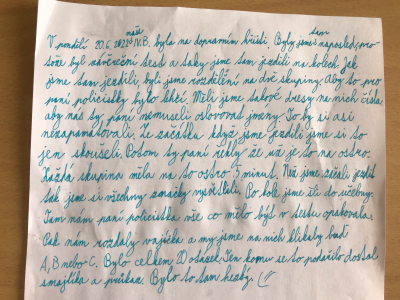 naše                                         tam
V pondělí 20.6.2022 IV.B. byla na dopravním hřišti. Byly jsme naposled, pro-
tože byl závěreční test a taky jsme tam jezdili na kolech. Jak
jsme tam jezdili, byli jsme rozdělení na dvě skupiny. Aby to pro
paní policistky bylo lehčí. Měli jsme takové dresy na nich čísla
aby nás ty paní nemuseli oslovovat jmény. To by si asi
nezapamatovali. Ze začátku když jsme jezdili jsme si to
jen skoušeli. Potom ty paní řekly že už je to na ostro.
Každá skupina měla na to ostro 5 minut. Než jsme začali jezdit
tak jsme si všechny značky vysvětlili. Po kole jsme šli do učebny.
Tam nám paní policistka vše co mělo být v testu opakovala.
Pak nám rozdaly vajíčka a my jsme na nich klikaly buď
A, B nebo C. Bylo celkem 20 otázek. Ten komu se to podařilo dostal
smajlíka a průkaz. Bylo to tam hezký.